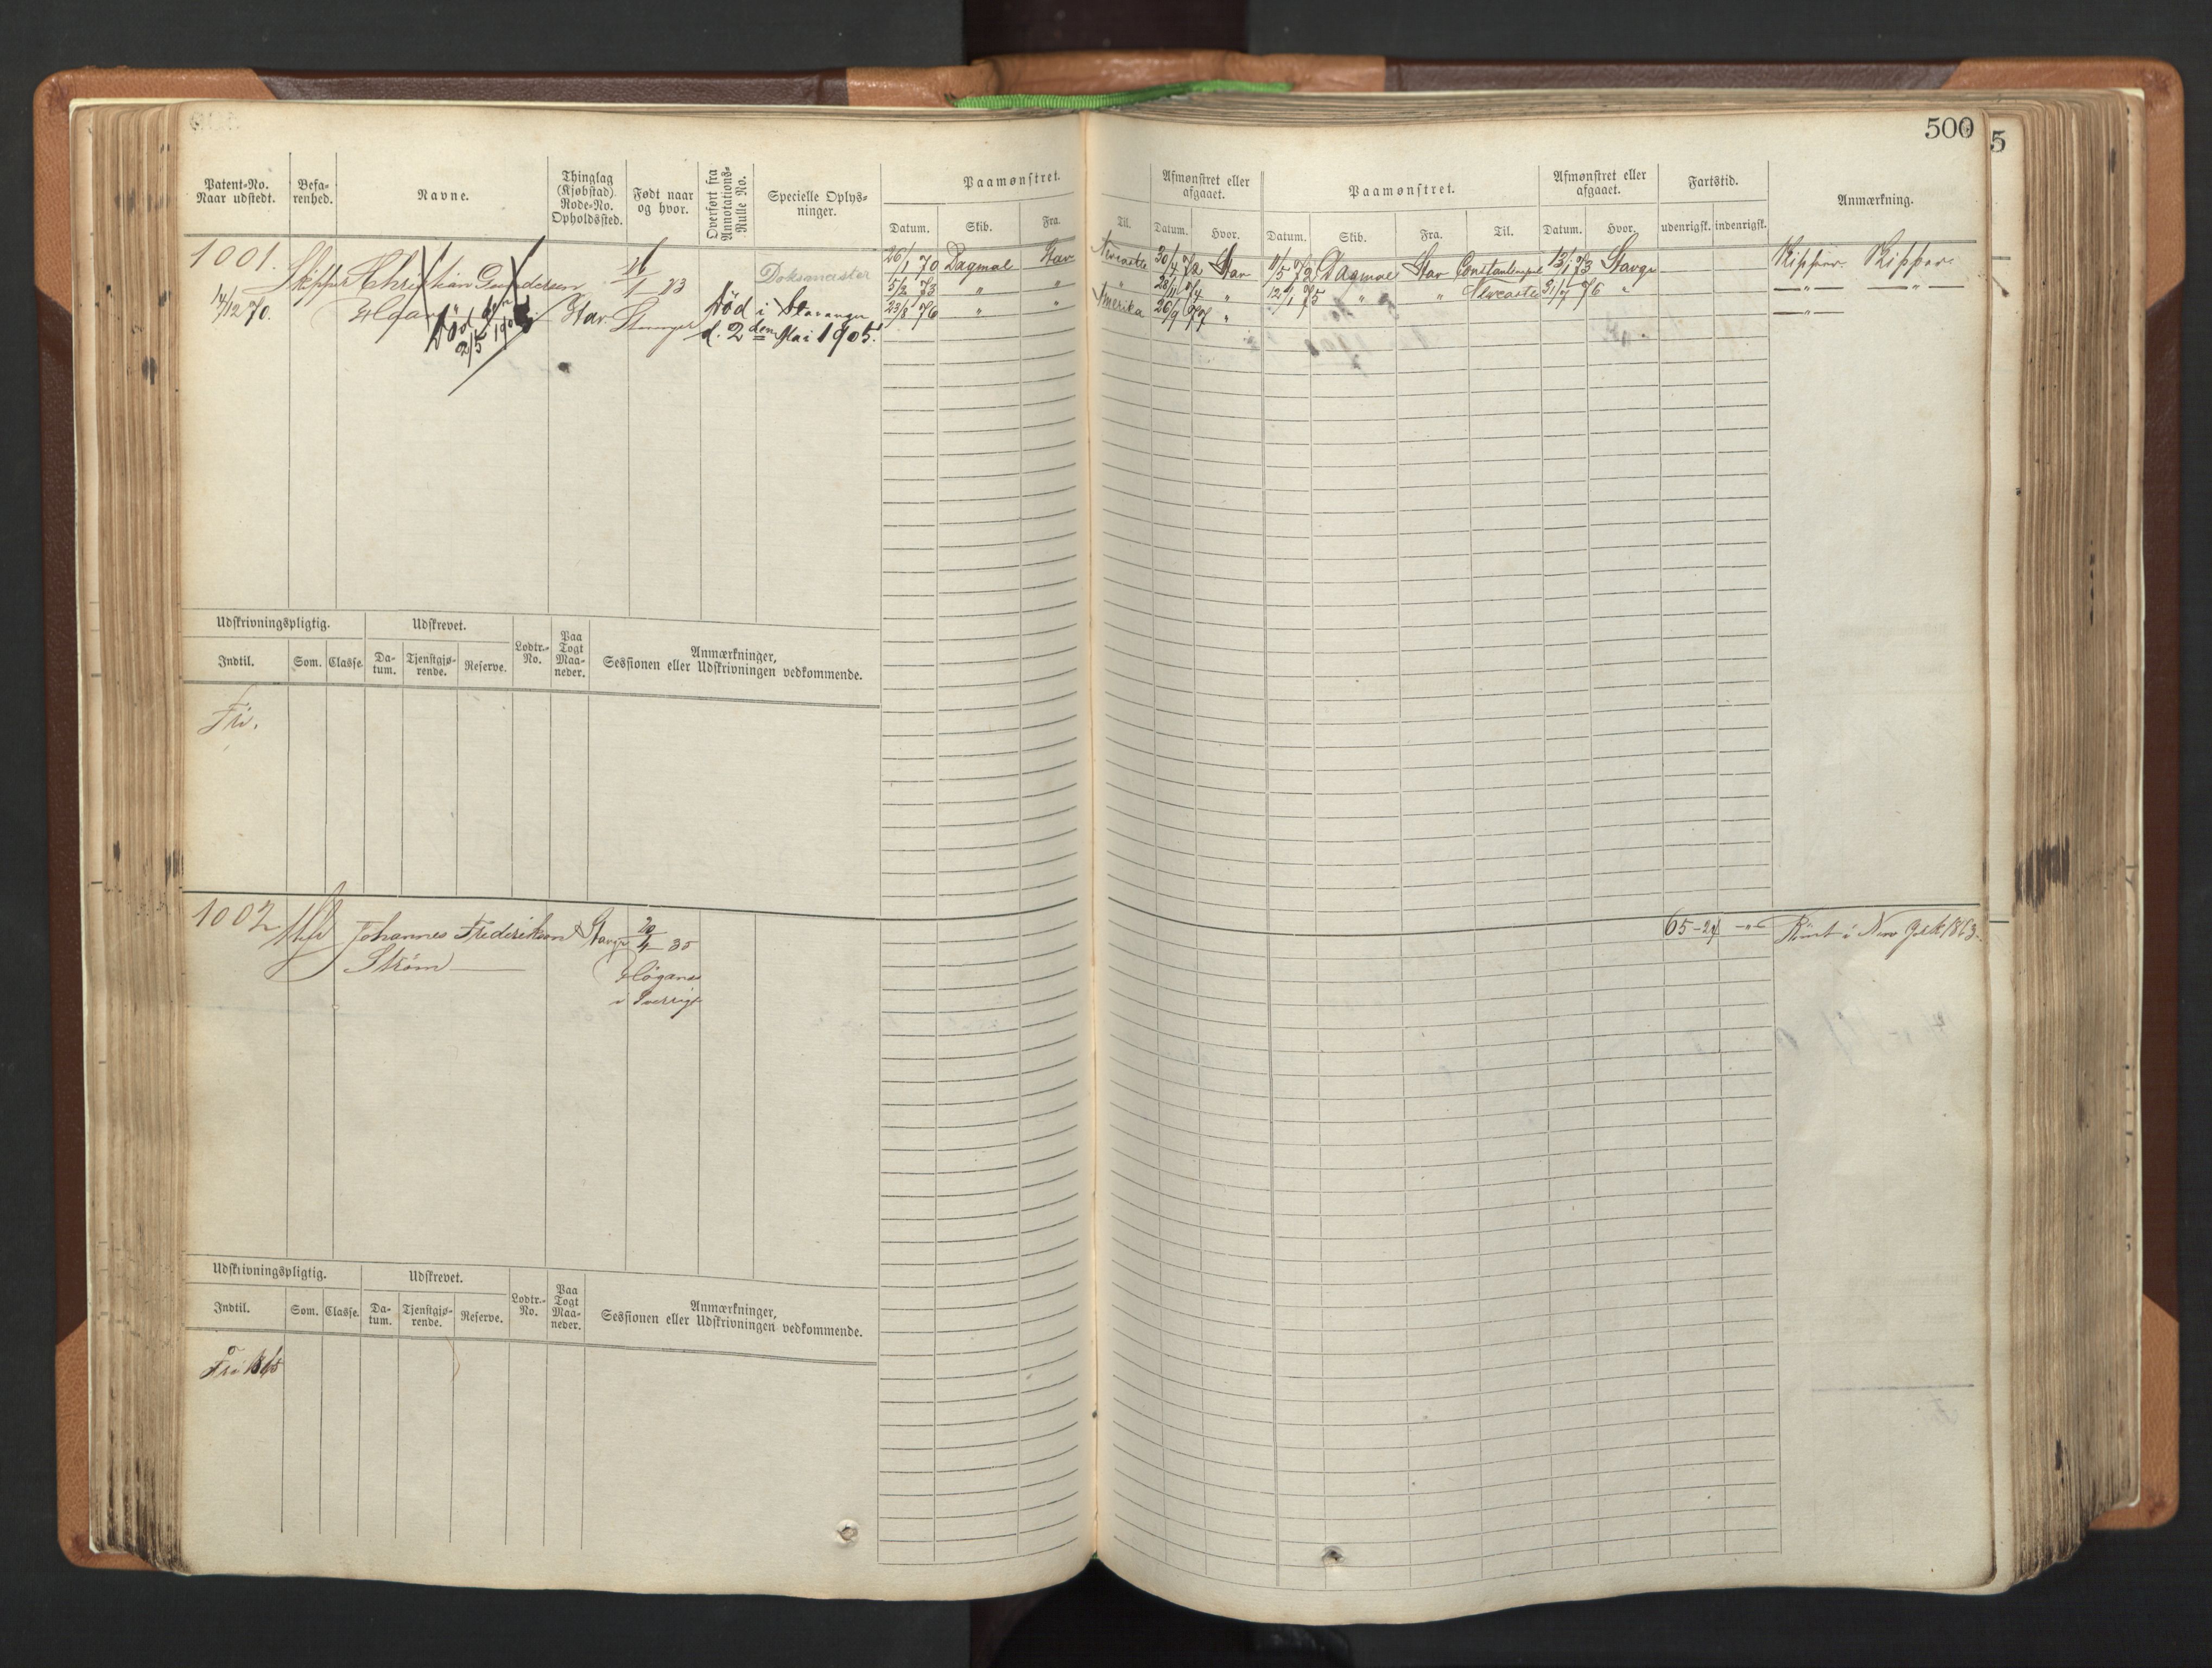 500
5
Patent-No.
Naar udstedt.
Befa-
renhed.
Navne.
Thinglag
(Kjøbstad)
Rode-No.
Opholdssted.
Født naar
og hvor.
Overført fra
Annotations-
Rulle No.
Specielle Oplys-
ninger.
Paamønstret.
Datum. Skib. Fra.
Til.
Afmønstret eller
afgaaet.
Datum. Hvor.
Paamønstret.
Datum. Skib. Fra. Til.
Afmønstret eller
afgaaet.
Datum. Hvor.
Fartstid.
udenrigsk. indenrigsk.
Anmærkning.
1001.
14/12 70.
Skipper Christian Gundersen
Haar
Død den
2/5 1905
Stav.
1 23
Stavanger
Doksmester
Død i Stavanger
d. 2den Mai 1905.
26/1 70 Dagmal Stav Newcastle 30/4 72 Stav 11/5 72 Dagmal Stav Constantinopel 13/1 73 Stavgr Skipper. Skipper.
5/2 73 " " " 28/11 74 " 12/1 75 " " Newcastle 31/7 76 " —"— —"—
23/8 76 " " Amerika 26/9 77 " —"—
Udskrivningspligtig. Udskrevet.
Indtil. Som. Classe.
Da-
tum.
Tjenstgjø-
rende.
Reserve.
Lodtr.-
No.
Paa
Togt
Maa-
neder.
Anmærkninger,
Sessionen eller Udskrivningen vedkommende.
Fri.
1002 Johannes Frederiksen Stavgr 20/4 35 65-24 -"- Rømt i New York 1863.
Strøm
Höganes
i Sverrige
Udskrivningspligtig. Udskrevet.
Indtil. Som. Classe.
Da-
tum.
Tjenstgjø-
rende.
Reserve.
Lodtr.-
No.
Paa
Togt
Maa-
neder.
Anmærkninger,
Sessionen eller Udskrivningen vedkommende.
Fri